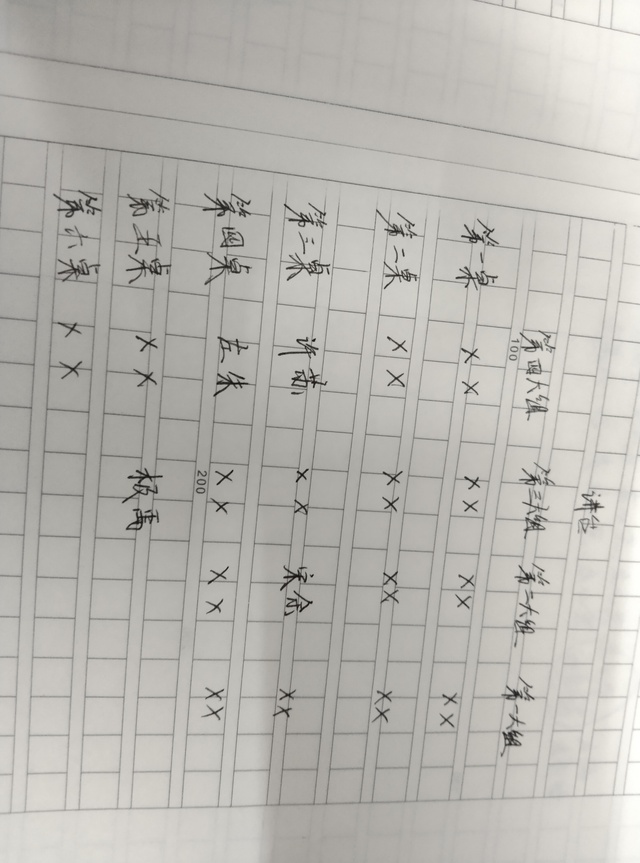 讲台
第四大组 第三大组 第二大组 第一大组
100
第一桌 ×× ×× ×× ××
第二桌 ×× ×× ×× ××
第三桌 许苏 ×× ××
第四桌 ×× ×× ××
200
第五桌 ××
第六桌 ××